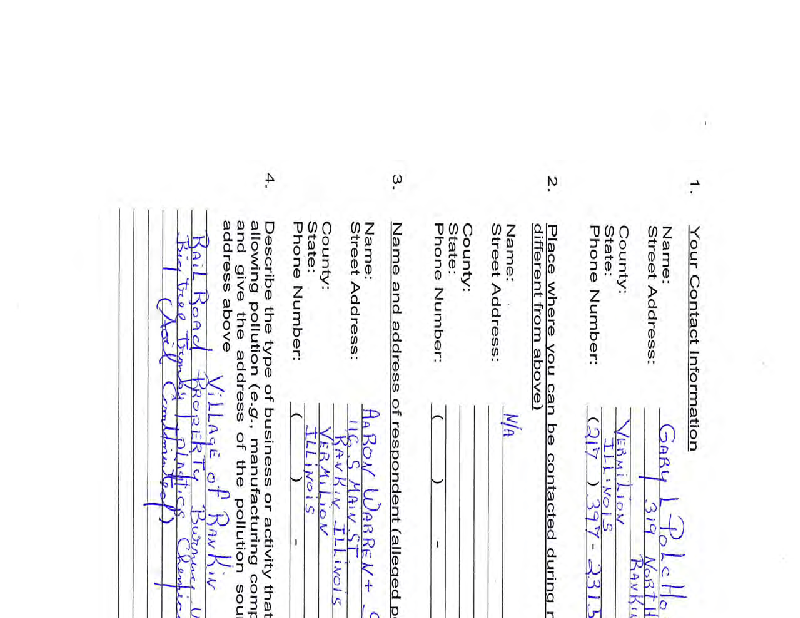 1. Your Contact Information
Name: GARY L
Street Address: 319 NORTH
RANKIN
County: VERMILION
State: ILLINOIS
Phone Number: (217) 397-2315
2. Place where you can be contacted during
different from above)
Name: N/A
Street Address:
County:
State:
Phone Number: ( ) -
3. Name and address of respondent (alleged p
Name: AARON WARREN +
Street Address: 116 S MAIN ST
RANKIN ILLINOIS
County: VERMILION
State: ILLINOIS
Phone Number: ( ) -
4. Describe the type of business or activity that
allowing pollution (e.g., manufacturing comp
and give the address of the pollution sou
address above
VILLAGE OF RANKIN
RAIL ROAD PROPERTY Burning
plastics
(Soil Contaminated)